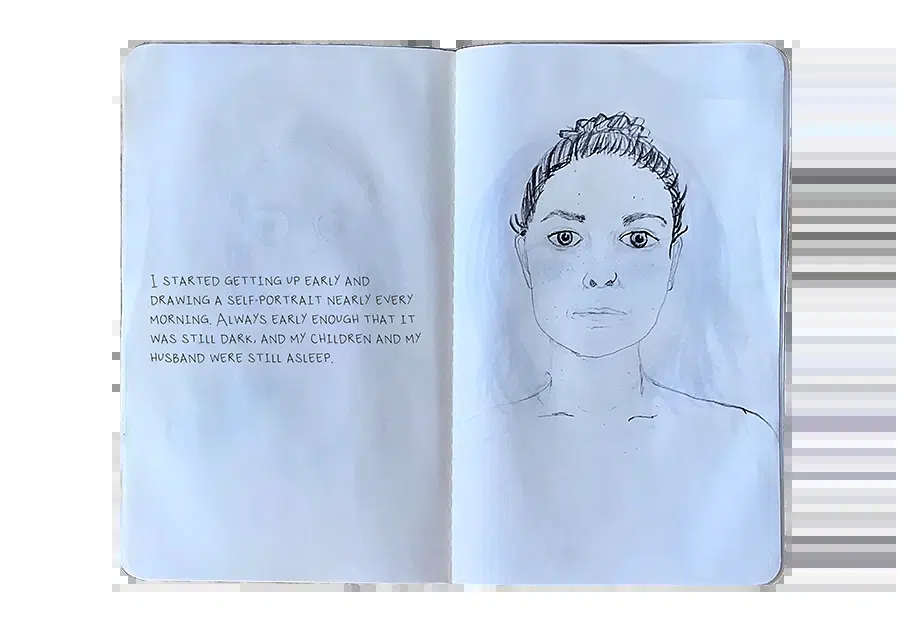 I STARTED GETTING UP EARLY AND
DRAWING A SELF-PORTRAIT NEARLY EVERY
MORNING. ALWAYS EARLY ENOUGH THAT IT
WAS STILL DARK, AND MY CHILDREN AND MY
HUSBAND WERE STILL ASLEEP.